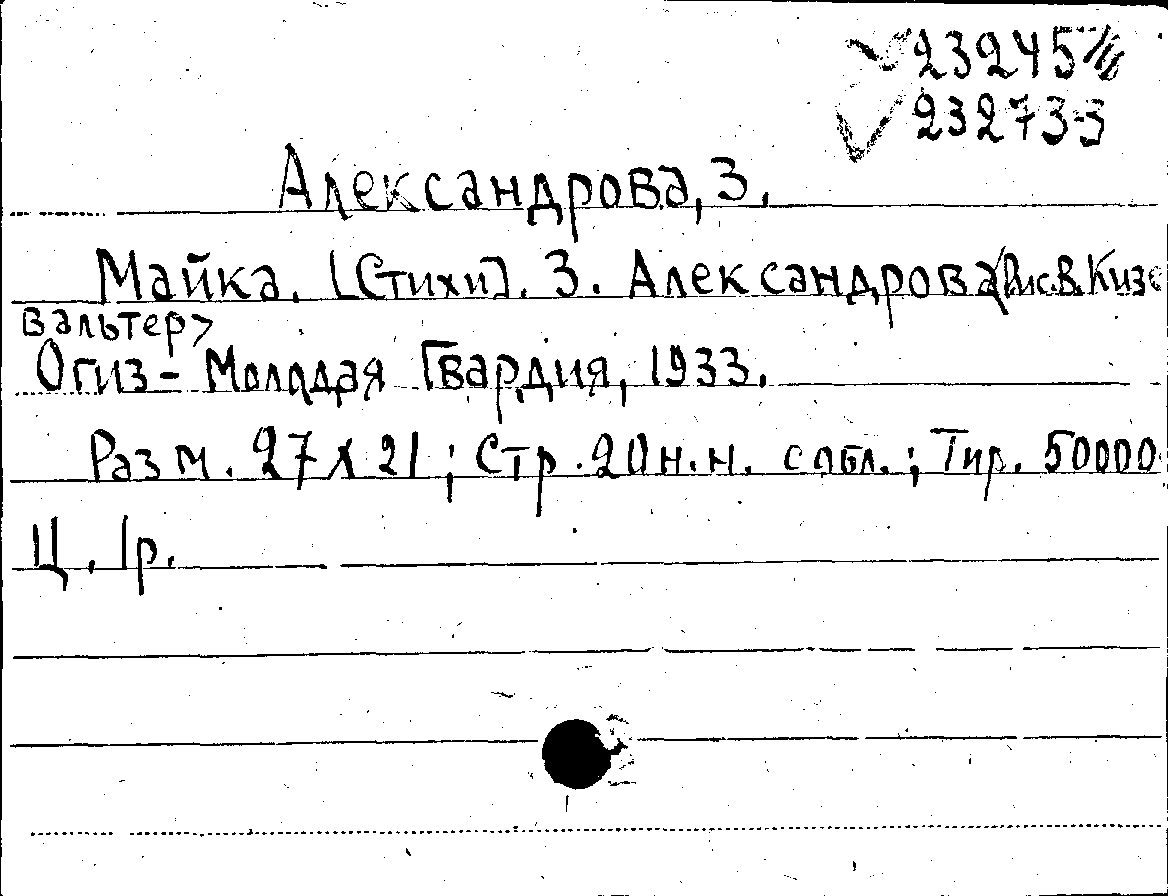 23245
23273-3
Александрова, З.
Майка. [Стихи]. З. Александрова <Рис. В. Кизе
вальтер>
Огиз – Молодая Гвардия, 1933.
Разм. 27 х 21 ; Стр. 20 н.н. с обл. ; Тир. 50000
Ц. 1р.